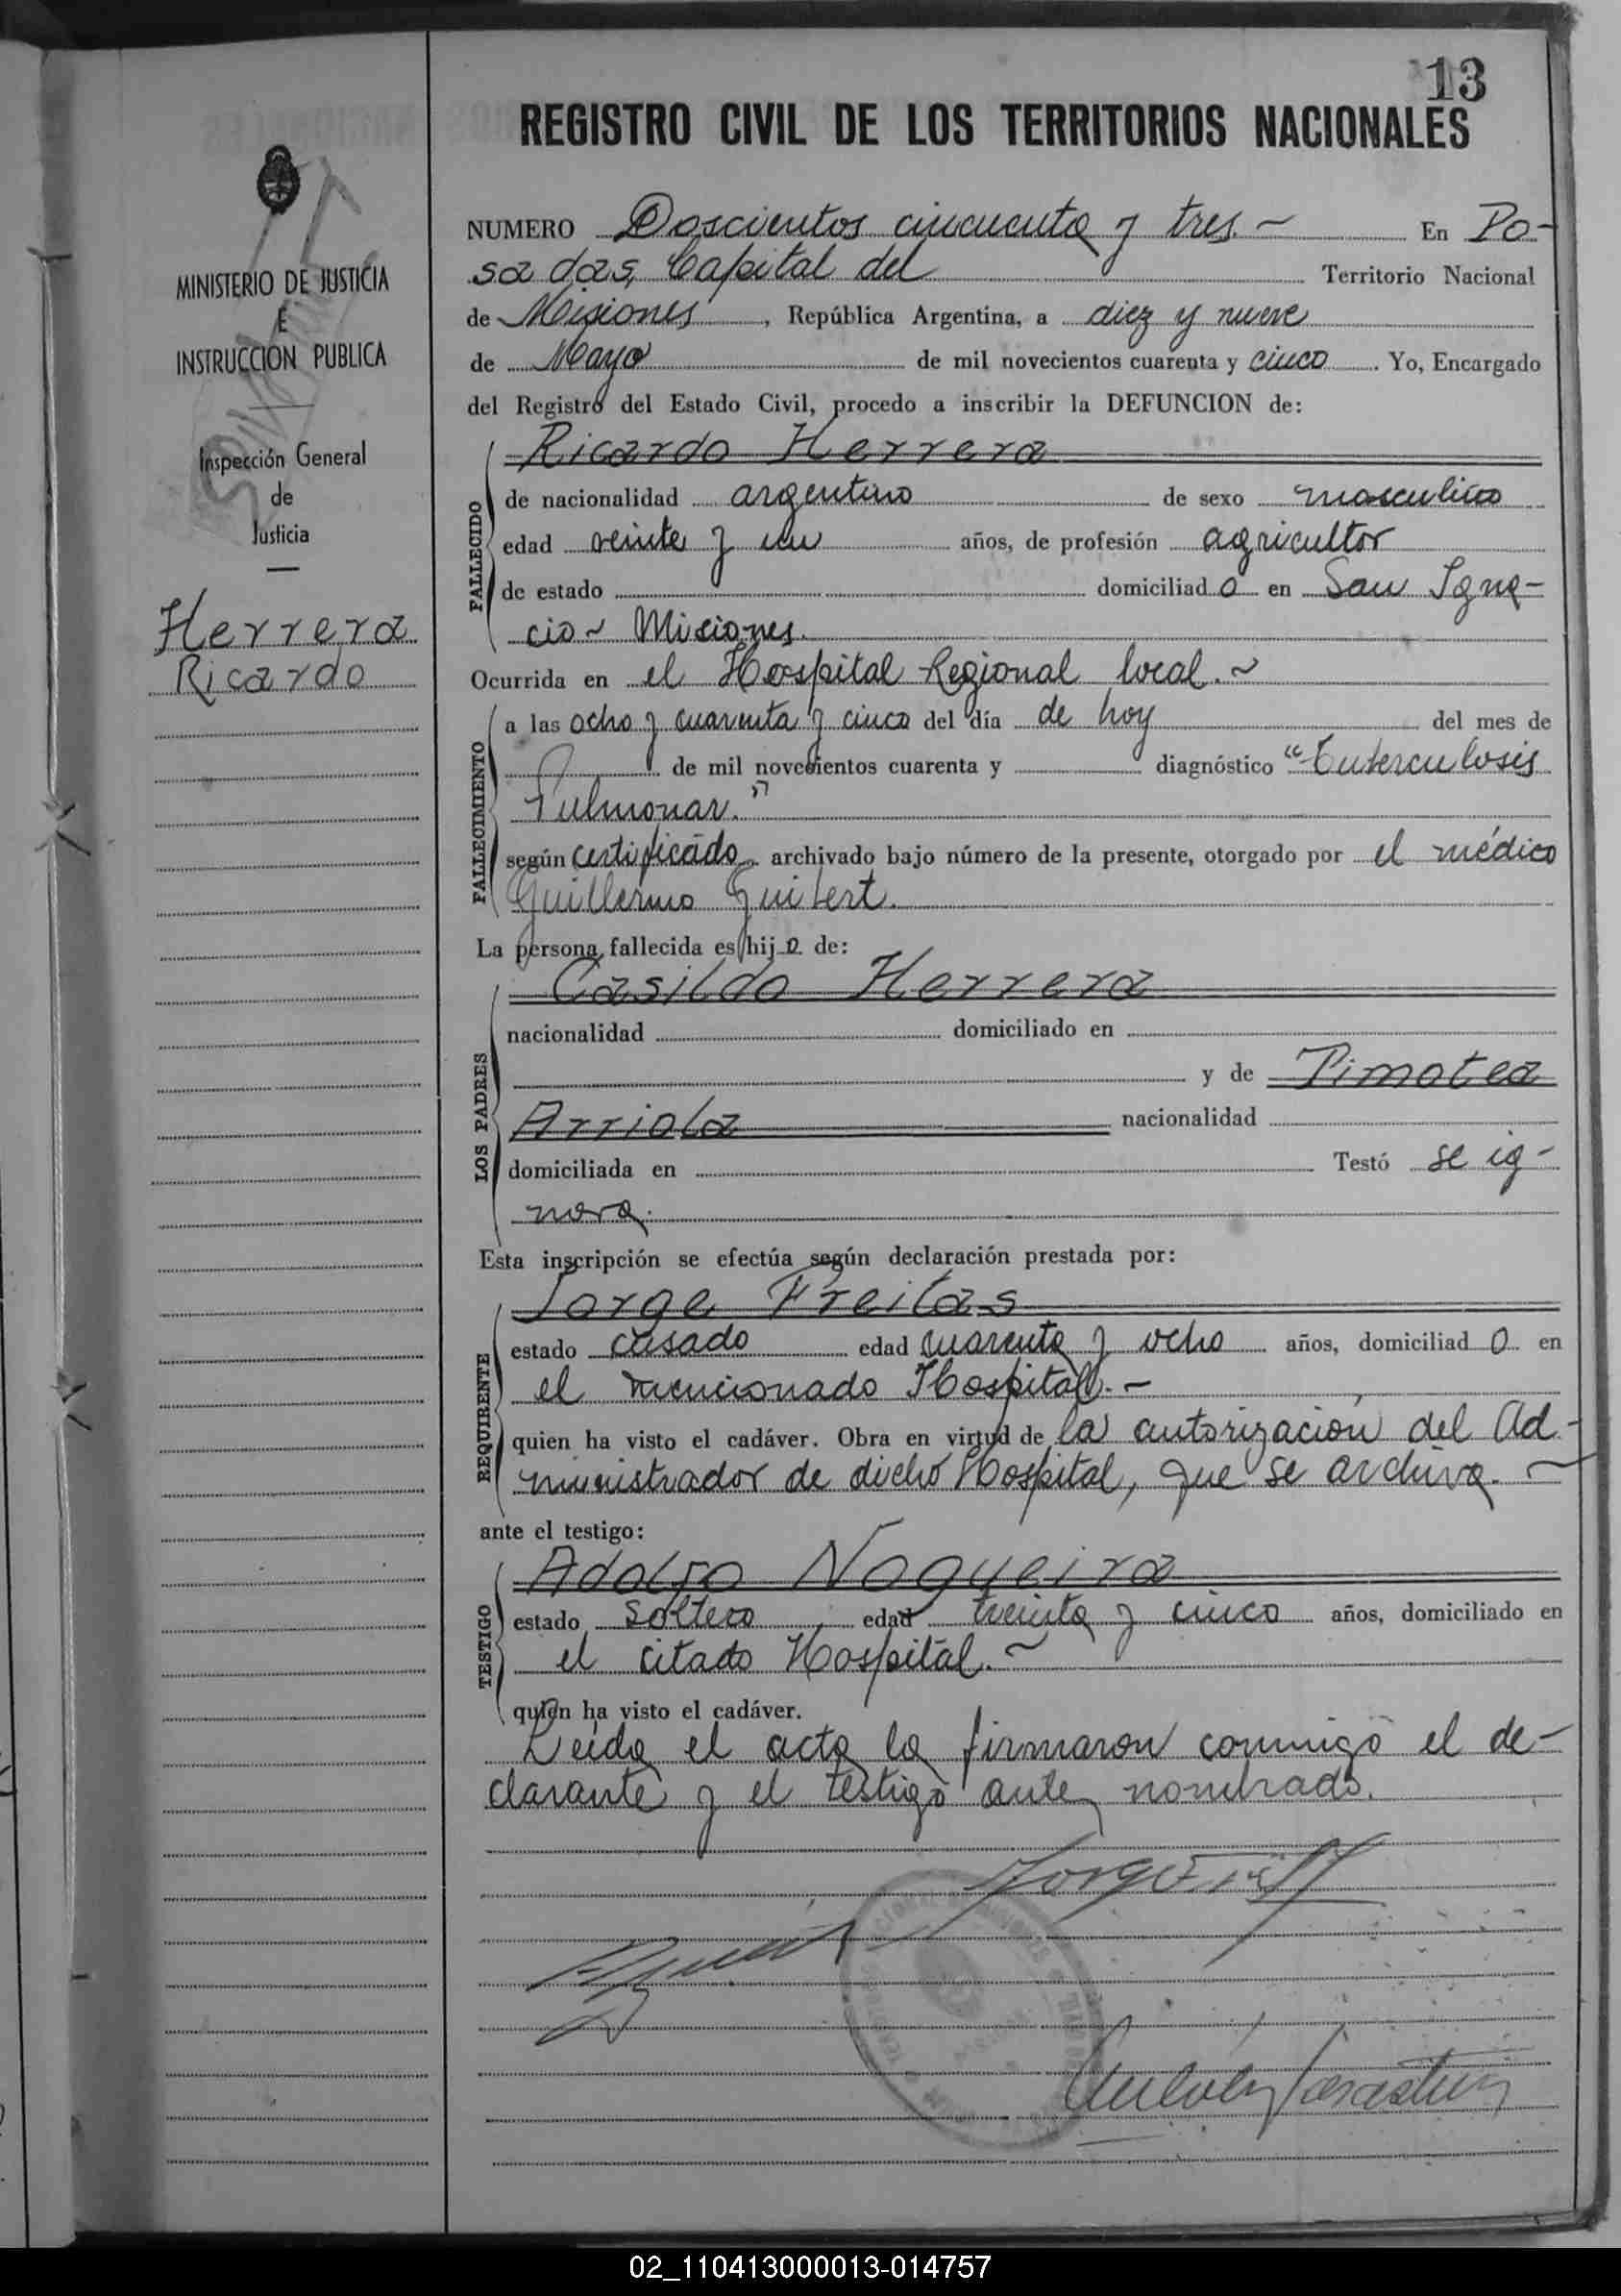 13
REGISTRO CIVIL DE LOS TERRITORIOS NACIONALES
MINISTERIO DE JUSTICIA
E
INSTRUCCION PUBLICA
Inspección General
de
Justicia
Herrera
Ricardo
NUMERO Doscientos cincuenta y tres.- En Po-
sadas, Capital del Territorio Nacional
de Misiones, República Argentina, a diez y nueve
de Mayo de mil novecientos cuarenta y cinco. Yo, Encargado
del Registro del Estado Civil, procedo a inscribir la DEFUNCION de:
Ricardo Herrera
FALLECIDO
de nacionalidad argentino de sexo masculino
edad veinte y un años, de profesión agricultor
de estado domiciliado en San Igna-
cio - Misiones.
Ocurrida en el Hospital Regional local.-
FALLECIMIENTO
a las ocho y cuarenta y cinco del día de hoy del mes de
de mil novecientos cuarenta y diagnóstico "Tuberculosis
Pulmonar."
según certificado archivado bajo número de la presente, otorgado por el médico
Guillermo Guibert.
La persona fallecida es hijo de:
Casildo Herrera
LOS PADRES
nacionalidad domiciliado en
y de Timotea
Arriola nacionalidad
domiciliada en Testó se ig-
nora.
Esta inscripción se efectúa según declaración prestada por:
Jorge Freitas
REQUIRENTE
estado casado edad cuarenta y ocho años, domiciliado en
el mencionado Hospital.-
quien ha visto el cadáver. Obra en virtud de la autorización del Ad-
ministrador de dicho Hospital, que se archiva.-
ante el testigo:
Adolfo Nogueira
TESTIGO
estado soltero edad treinta y cinco años, domiciliado en
el citado Hospital.-
quien ha visto el cadáver.
Leída el acta la firmaron conmigo el de-
clarante y el testigo antes nombrado.
02_110413000013-014757